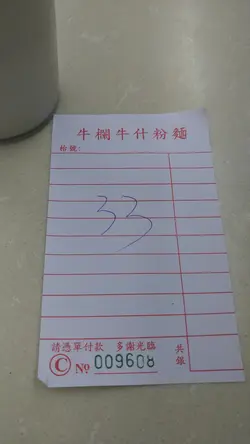 牛欄牛什粉麵
枱號:
33
請憑單付款 多謝光臨
共銀
Ⓒ Nº 009608